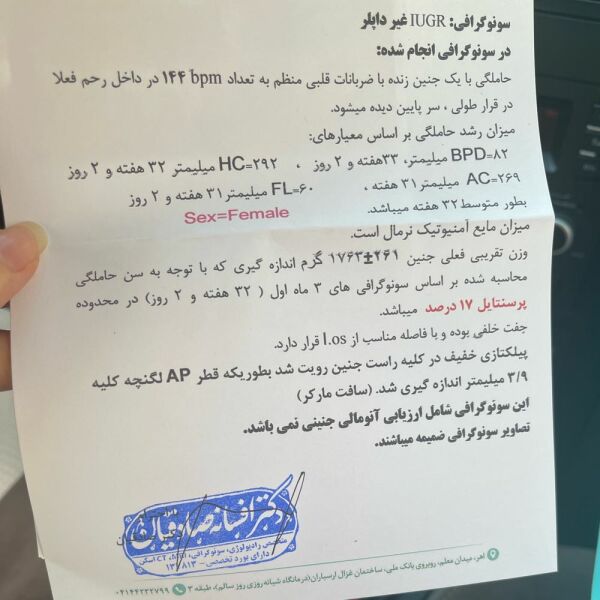 سونوگرافی: IUGR غیر داپلر
در سونوگرافی انجام شده:
حاملگی با یک جنین زنده با ضربانات قلبی منظم به تعداد ۱۴۴ bpm در داخل رحم فعلا
در قرار طولی ، سر پایین دیده میشود.
میزان رشد حاملگی بر اساس معیارهای:
BPD=۸۲ میلیمتر، ۳۳هفته و ۲ روز ، HC=۲۹۲ میلیمتر ۳۲ هفته و ۲ روز
AC=۲۶۹ میلیمتر ۳۱ هفته ، FL=۶۰ میلیمتر ۳۱ هفته و ۲ روز
بطور متوسط ۳۲ هفته میباشد. Sex=Female
میزان مایع آمنیوتیک نرمال است.
وزن تقریبی فعلی جنین ۲۶۱±۱۷۶۳ گرم اندازه گیری که با توجه به سن حاملگی
محاسبه شده بر اساس سونوگرافی های ۳ ماه اول ( ۳۲ هفته و ۲ روز) در محدوده
پرسنتایل ۱۷ درصد میباشد.
جفت خلفی بوده و با فاصله مناسب از I.os قرار دارد.
پیلکتازی خفیف در کلیه راست جنین رویت شد بطوریکه قطر AP لگنچه کلیه
۳/۹ میلیمتر اندازه گیری شد. (سافت مارکر)
این سونوگرافی شامل ارزیابی آنومالی جنینی نمی باشد.
تصاویر سونوگرافی ضمیمه میباشند.
دکتر افسانه
متخصص رادیولوژی، سونوگرافی، MRI، CT اسکن
دارای بورد تخصصی - ۱۳۰۸۱۳
اهر، میدان معلم، روبروی بانک ملی، ساختمان غزال ارسباران(درمانگاه شبانه روزی روز سالم)، طبقه ۳
۰۴۱۴۴۲۲۲۷۹۹